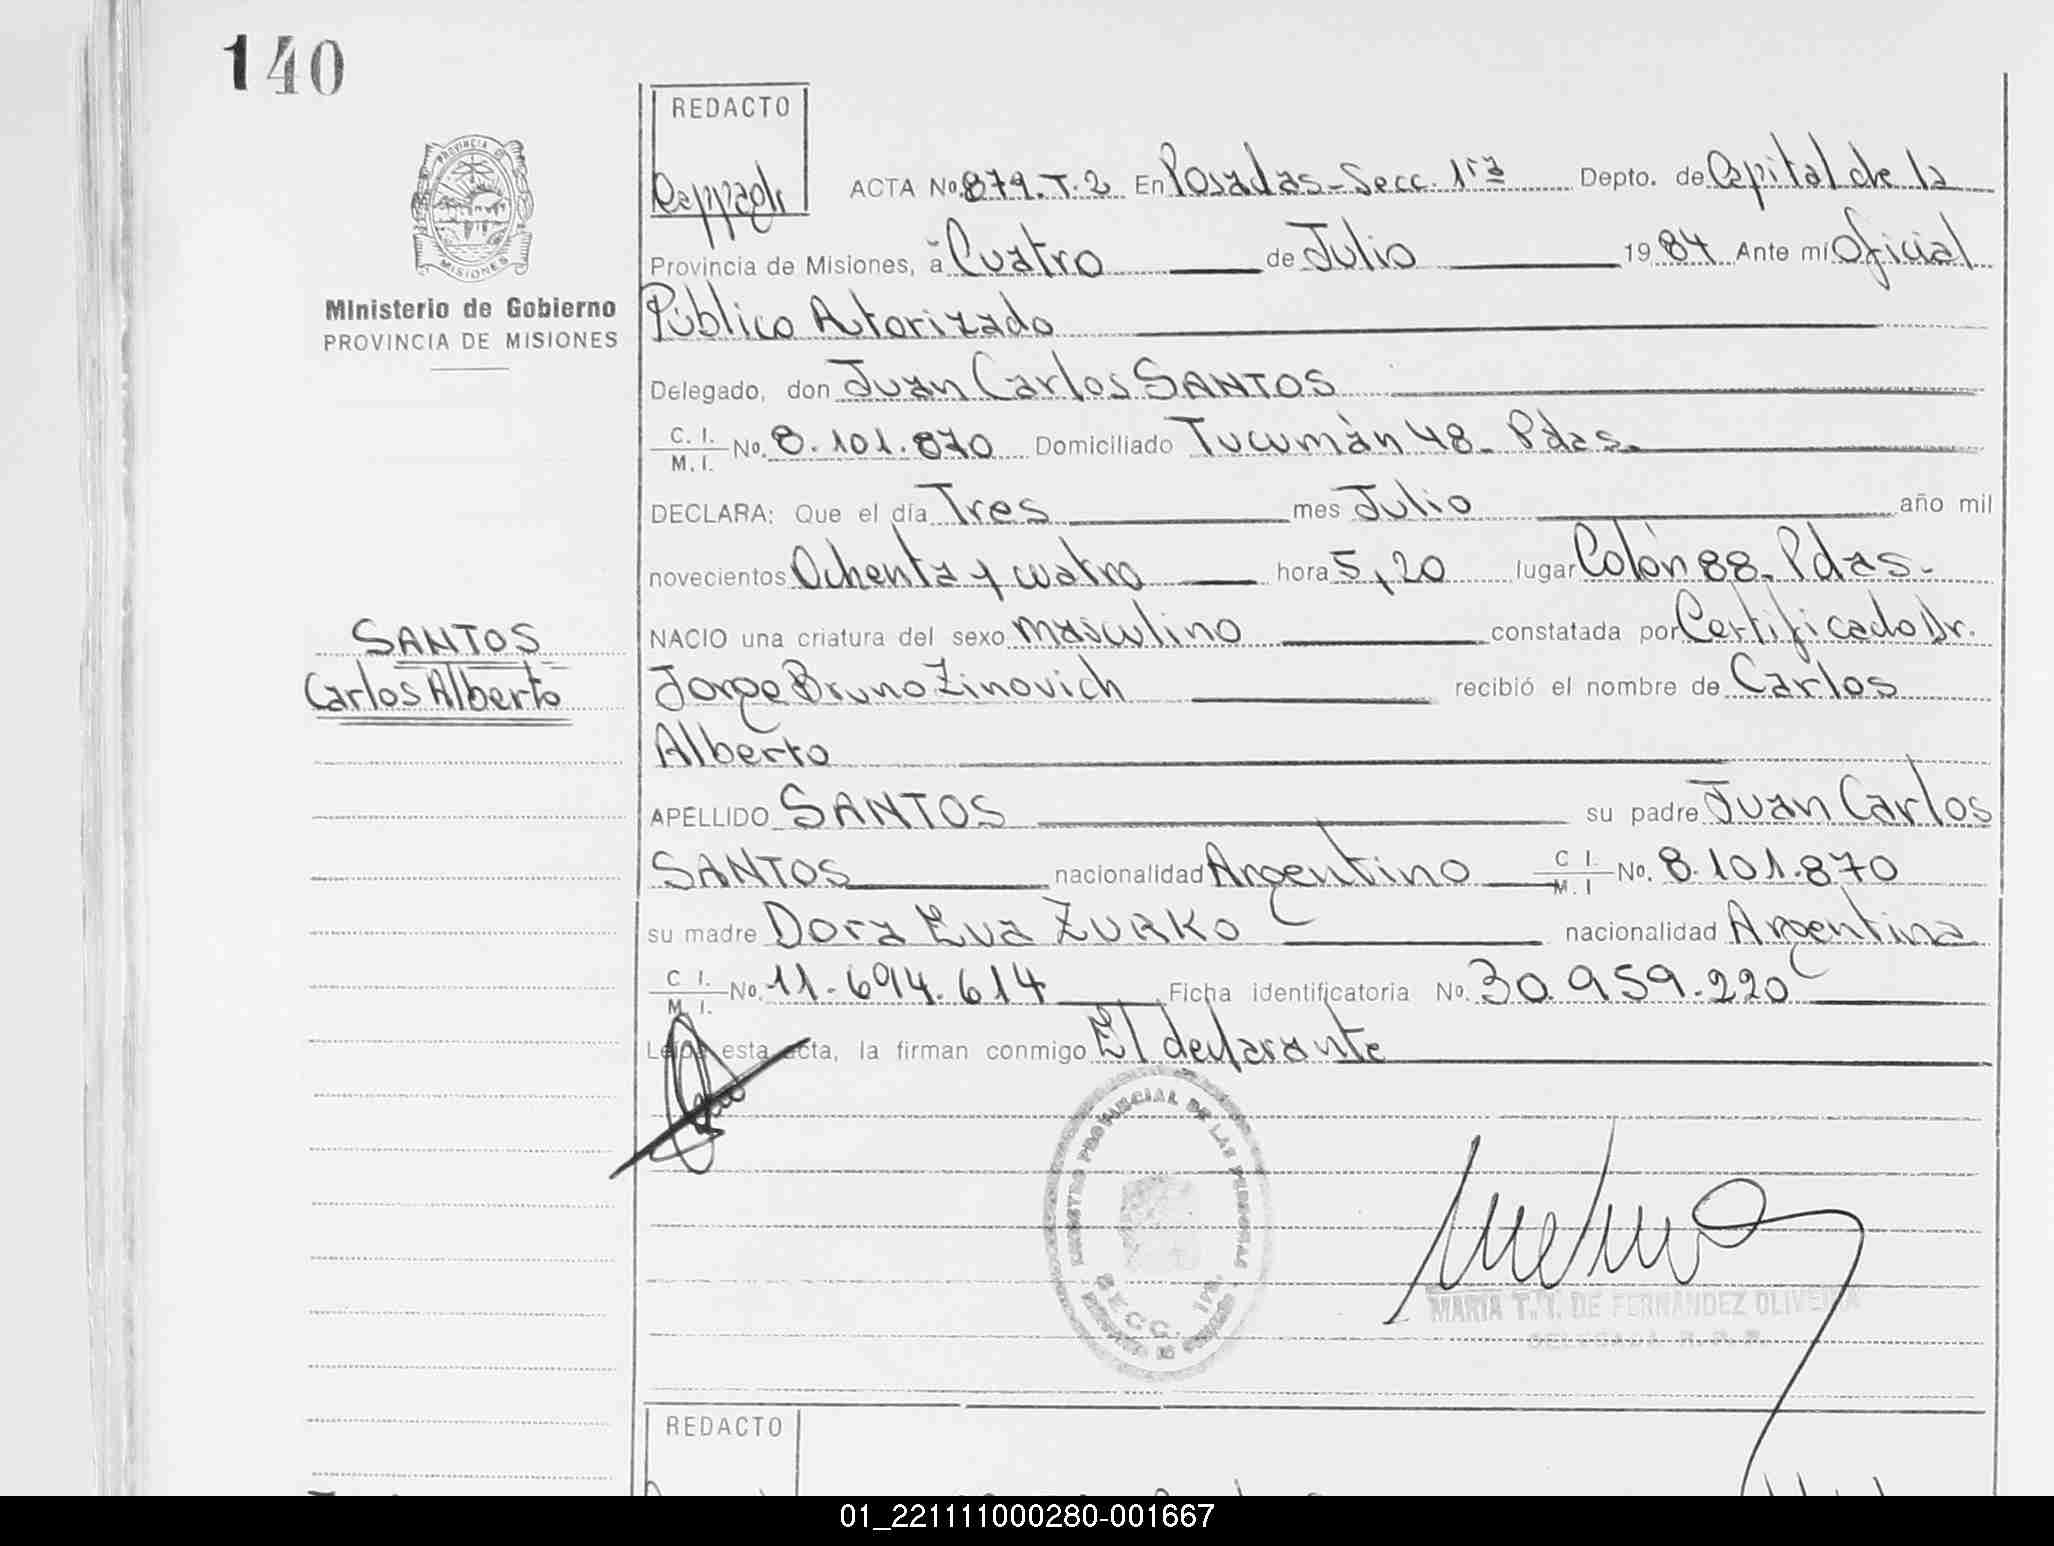 140
REDACTO
PROVINCIA DE
MISIONES
Ministerio de Gobierno
PROVINCIA DE MISIONES
ACTA No. 879. T. 2 En Posadas - Secc. 1ra Depto. de Capital de la
Provincia de Misiones, a Cuatro de Julio 19 84 Ante mí Oficial
Público Autorizado
Delegado, don Juan Carlos SANTOS
C. I. M. I. No. 8.101.870 Domiciliado Tucumán 48 - Pdas.
DECLARA: Que el día Tres mes Julio año mil
novecientos Ochenta y cuatro hora 5,20 lugar Colón 88 - Pdas -
NACIO una criatura del sexo masculino constatada por Certificado Dr.
Jorge Bruno Zinovich recibió el nombre de Carlos
Alberto
SANTOS
Carlos Alberto
APELLIDO SANTOS su padre Juan Carlos
SANTOS nacionalidad Argentino C I. M. I No. 8.101.870
su madre Dora Eva ZURKO nacionalidad Argentina
C I. M. I. No. 11.694.614 Ficha identificatoria No. 30.959.220
Leída esta acta, la firman conmigo El declarante
REGISTRO PROVINCIAL DE LAS PERSONAS
SECC. 1ra.
MARIA T. T. DE FERNANDEZ OLIVEIRA
DELEGADA R. P. P.
REDACTO
01_221111000280-001667